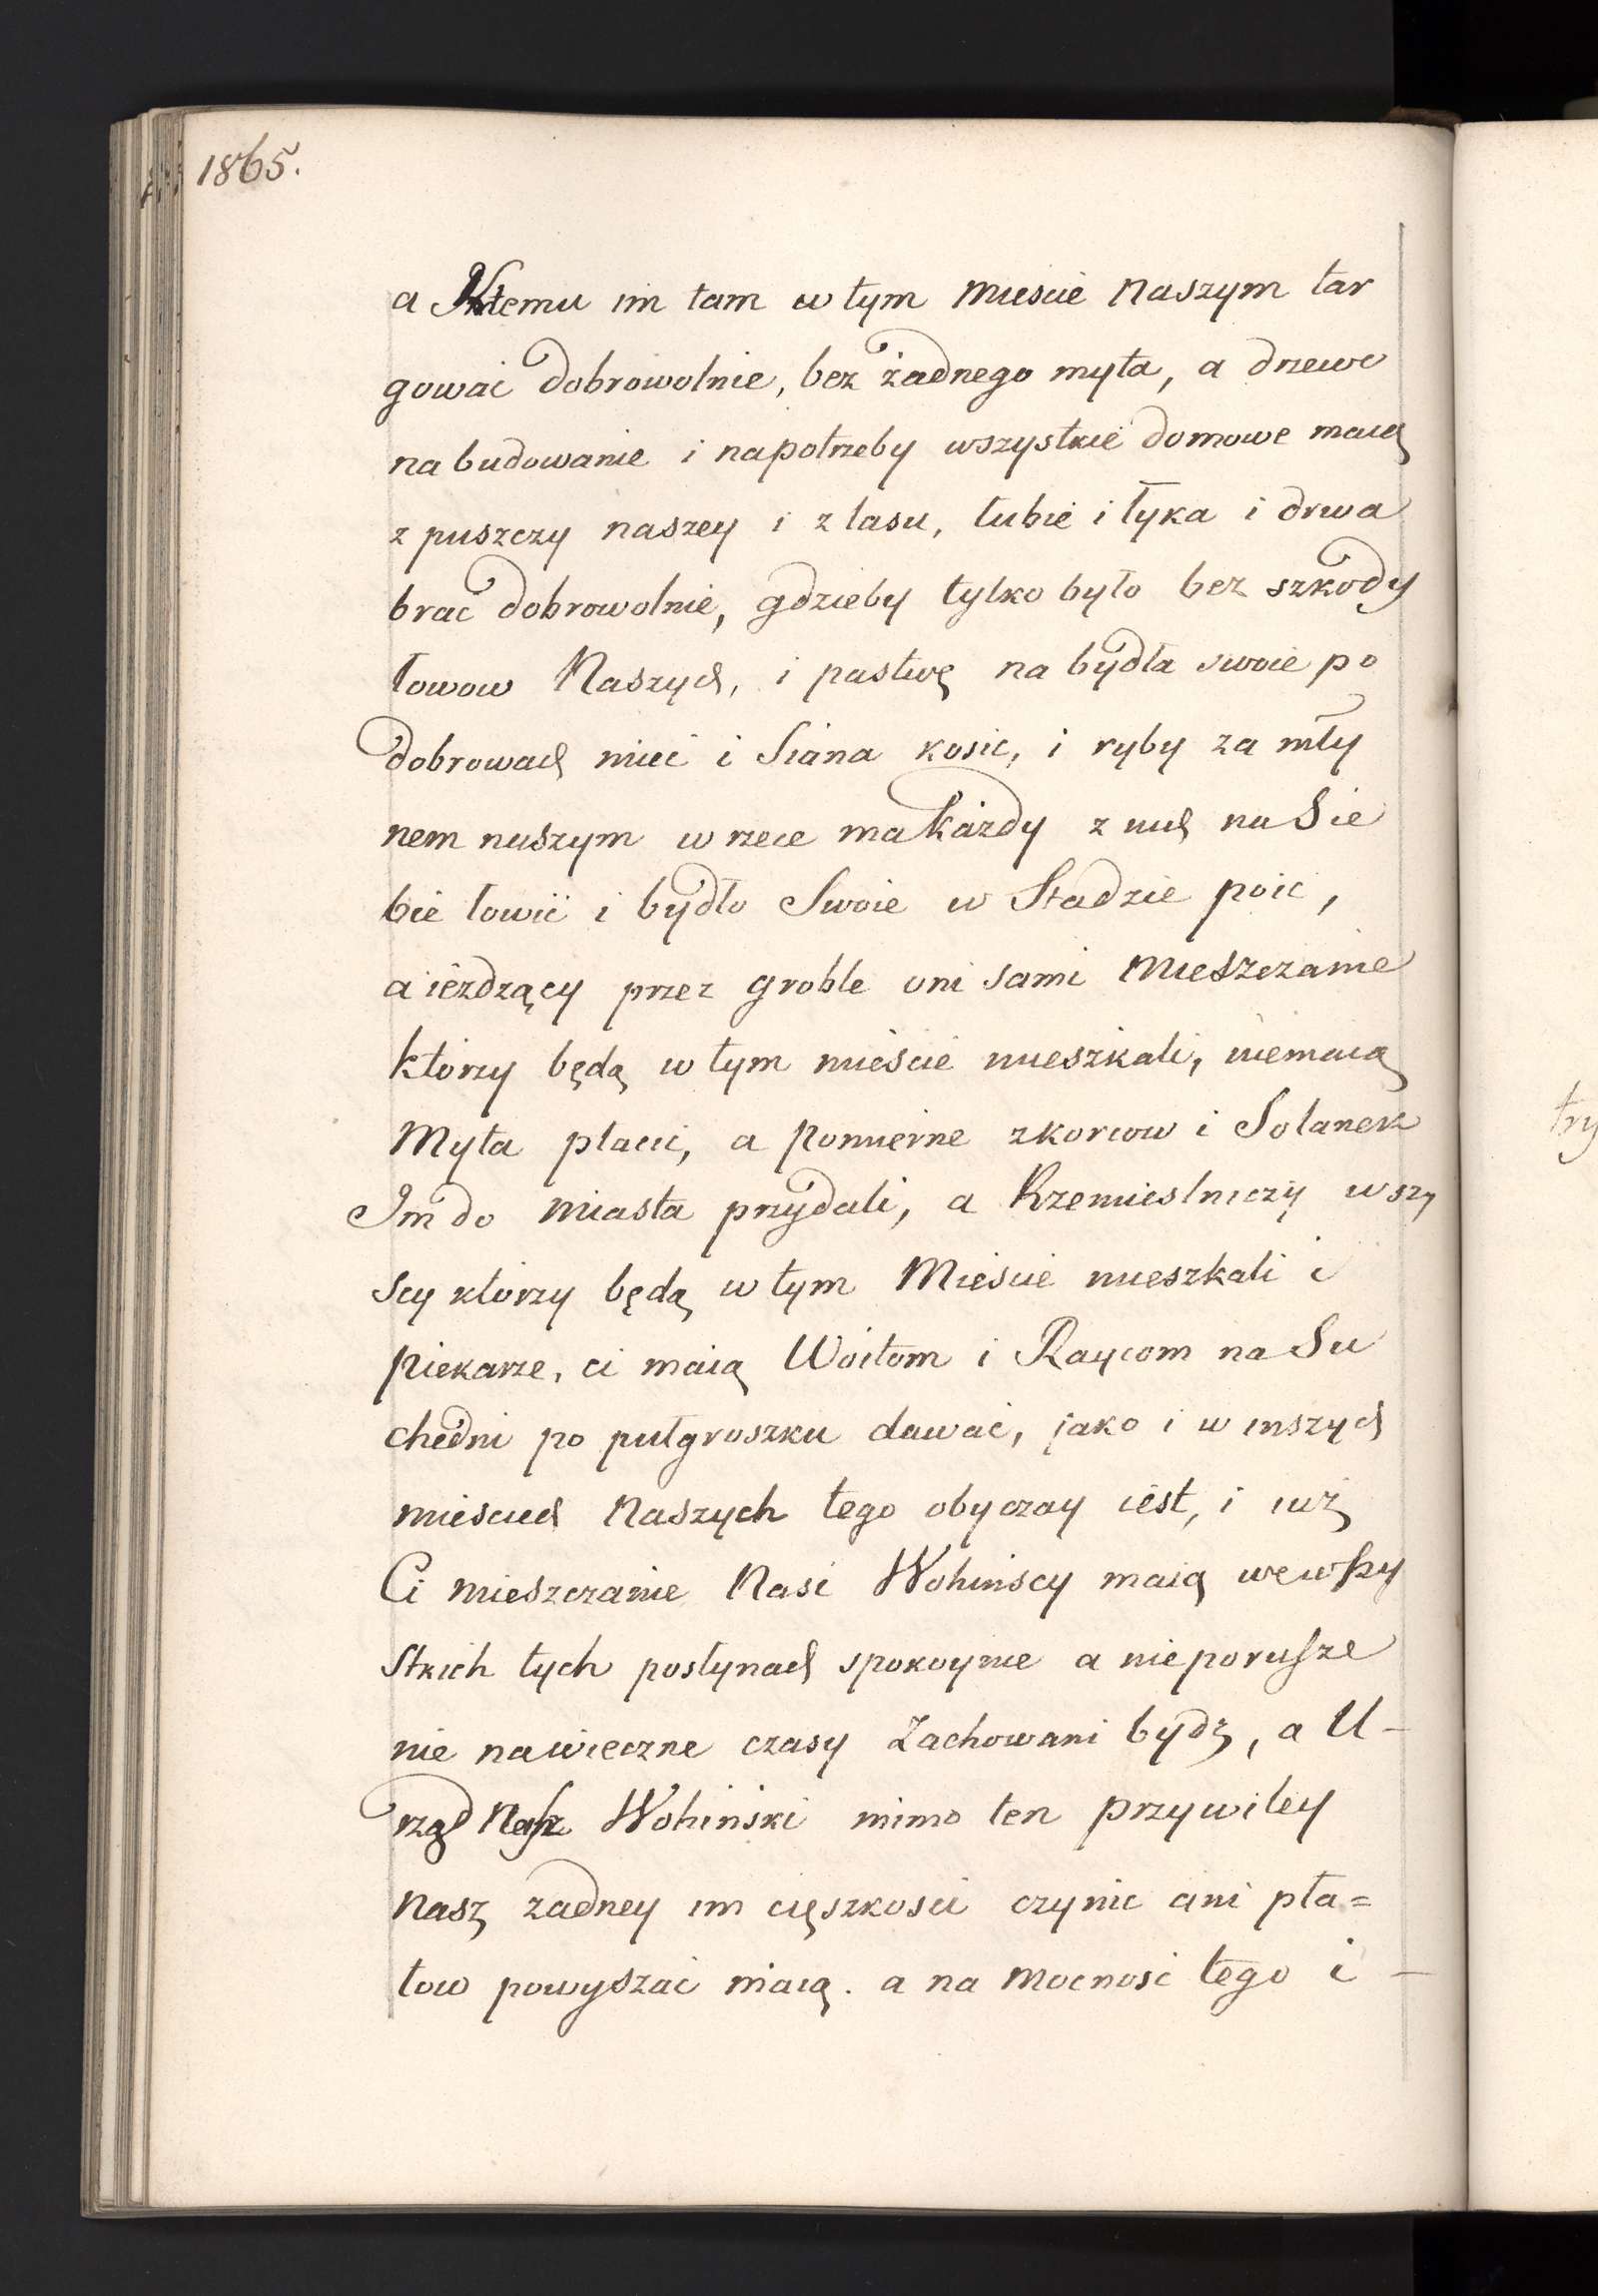 1865.
a Ktemu im tam w tym miescie Naszym tar
gowac dobrowolnie, bez żadnego myta, a drzewo
na budowanie i napotrzeby wszystkie domowe maią
z puszczy naszey i z lasu, łubie i łyka i drwa
brac dobrowolnie, gdzieby tylko było bez szkody
łowow Naszych, i pastwę na bydła swoie po
dobrowach miec i Siana kosic, i ryby za mły
nem naszym w rzece ma każdy z nich na Sie
bie łowic i bydło Swoie w Stadzie poic,
a ieżdzący przez groble oni sami Mieszczanie
którzy będą w tym mieście mieszkali, niemaią
Myta płacic, a Pomierne z korcow i Solanek
Im do miasta przydali, a Rzemieslniczy wszy
scy ktorzy będą w tym Mieście mieszkali i
piekarze, ci maią Woitom i Raycom na Su
chedni po pułgroszku dawać, jako i w inszych
miesciech Naszych tego obyczay iest, i iuż
Ci mieszczanie Nasi Wohinscy maią we wszy
stkich tych postynach spokoynie a nieporusze
nie nawieczne czasy Zachowani bydz, a U-
rząd Nasz Wohiński mimo ten przywiley
Nasz zadney im cięszkosci czynic ani pła=
tow powyszać maią. a na mocnosc tego i -
try